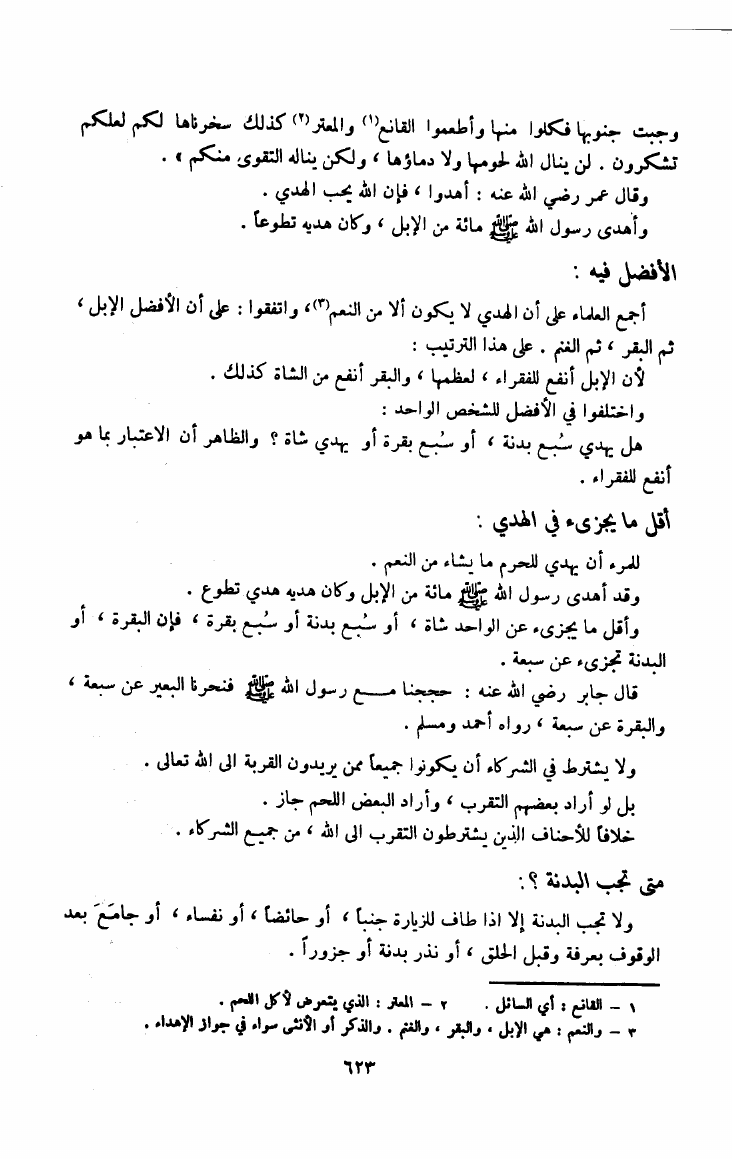 وجبت جنوبها فكلوا منها وأطعموا القانع(١) والمعتر(٢) كذلك سخرناها لكم لعلكم
تشكرون . لن ينال الله لحومها ولا دماؤها ، ولكن يناله التقوى منكم » .
وقال عمر رضي الله عنه : أهدوا ، فإن الله يحب الهدي .
وأهدى رسول الله ﷺ مائة من الإبل ، وكان هديه تطوعاً .
الأفضل فيه :
أجمع العلماء على أن الهدي لا يكون ألا من النعم(٣)، واتفقوا : على أن الأفضل الإبل ،
ثم البقر ، ثم الغنم . على هذا الترتيب :
لأن الإبل أنفع للفقراء ، لعظمها ، والبقر أنفع من الشاة كذلك .
واختلفوا في الأفضل للشخص الواحد :
هل يهدي سُبع بدنة ، أو سُبع بقرة أو يهدي شاة ؟ والظاهر أن الاعتبار بما هو
أنفع للفقراء .
أقل ما يجزىء في الهدي :
للمرء أن يهدي للحرم ما يشاء من النعم .
وقد أهدى رسول الله ﷺ مائة من الإبل وكان هديه هدي تطوع .
وأقل ما يجزىء عن الواحد شاة ، أو سُبع بدنة أو سُبع بقرة ، فإن البقرة ، أو
البدنة تجزىء عن سبعة .
قال جابر رضي الله عنه : حججنا مع رسول الله ﷺ فنحرنا البعير عن سبعة ،
والبقرة عن سبعة ، رواه أحمد ومسلم .
ولا يشترط في الشركاء أن يكونوا جميعاً ممن يريدون القربة الى الله تعالى .
بل لو أراد بعضهم التقرب ، وأراد البعض اللحم جاز .
خلافاً للأحناف الذين يشترطون التقرب الى الله ، من جميع الشركاء .
متى تجب البدنة ؟:
ولا تجب البدنة إلا اذا طاف للزيارة جنباً ، أو حائضاً ، أو نفساء ، أو جامَعَ بعد
الوقوف بعرفة وقبل الحلق ، أو نذر بدنة أو جزوراً .
١ – القانع : أي السائل . ٢ – المعتر : الذي يتعرض لأكل اللحم .
٣ – والنعم : هي الإبل ، والبقر ، والغنم . والذكر أو الأنثى سواء في جواز الإهداء .
٦٢٣